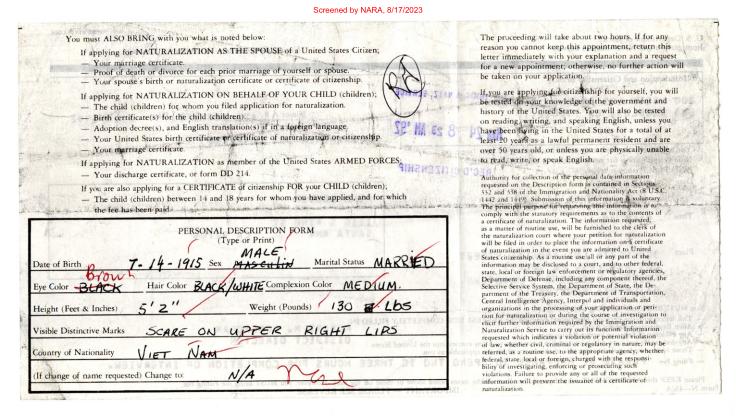 Screened by NARA, 8/17/2023
You must ALSO BRING with you what is noted below:
If applying for NATURALIZATION AS THE SPOUSE of a United States Citizen;
— Your marriage certificate.
— Proof of death or divorce for each prior marriage of yourself or spouse.
— Your spouse's birth or naturalization certificate or certificate of citizenship.
If applying for NATURALIZATION ON BEHALF OF YOUR CHILD (children);
— The child (children) for whom you filed application for naturalization.
— Birth certificate(s) for the child (children).
— Adoption decree(s), and English translation(s) if in a foreign language.
— Your United States birth certificate or certificate of naturalization or citizenship.
— Your marriage certificate.
If applying for NATURALIZATION as member of the United States ARMED FORCES;
— Your discharge certificate, or form DD 214.
If you are also applying for a CERTIFICATE of citizenship FOR your CHILD (children);
— The child (children) between 14 and 18 years for whom you have applied, and for which
the fee has been paid
PERSONAL DESCRIPTION FORM
(Type or Print)
Date of Birth 7-14-1915 Sex MALE MASCULIN Marital Status MARRIED
Eye Color Brown BLACK Hair Color BLACK/WHITE Complexion Color MEDIUM.
Height (Feet & Inches) 5'2" Weight (Pounds) 130 Lbs
Visible Distinctive Marks SCARE ON UPPER RIGHT LIPS
Country of Nationality VIET NAM
(If change of name requested) Change to: N/A
The proceeding will take about two hours. If for any
reason you cannot keep this appointment, return this
letter immediately with your explanation and a request
for a new appointment; otherwise, no further action will
be taken on your application.
If you are applying for citizenship for yourself, you will
be tested on your knowledge of the government and
history of the United States. You will also be tested
on reading, writing, and speaking English, unless you
have been living in the United States for a total of at
least 20 years as a lawful permanent resident and are
over 50 years old, or unless you are physically unable
to read, write, or speak English.
Authority for collection of the personal data information
requested on the Description form is contained in Sections
332 and 338 of the Immigration and Nationality Act (8 U.S.C.
1442 and 1449). Submission of this information is voluntary.
The principal purpose for requesting this information is to
comply with the statutory requirements as to the contents of
a certificate of naturalization. The information requested,
as a matter of routine use, will be furnished to the clerk of
the naturalization court where your petition for naturalization
will be filed in order to place the information on a certificate
of naturalization in the event you are admitted to United
States citizenship. As a routine use all or any part of the
information may be disclosed to a court, and to other federal,
state, local or foreign law enforcement or regulatory agencies,
Department of Defense, including any component thereof, the
Selective Service System, the Department of State, the De-
partment of the Treasury, the Department of Transportation,
Central Intelligence Agency, Interpol and individuals and
organizations in the processing of your application or peti-
tion for naturalization or during the course of investigation to
elicit further information required by the Immigration and
Naturalization Service to carry out its function. Information
requested which indicates a violation or potential violation
of law, whether civil, criminal or regulatory in nature, may be
referred, as a routine use, to the appropriate agency, whether
federal, state, local or foreign, charged with the responsi-
bility of investigating, enforcing or prosecuting such
violations. Failure to provide any or all of the requested
information will prevent the issuance of a certificate of
naturalization.